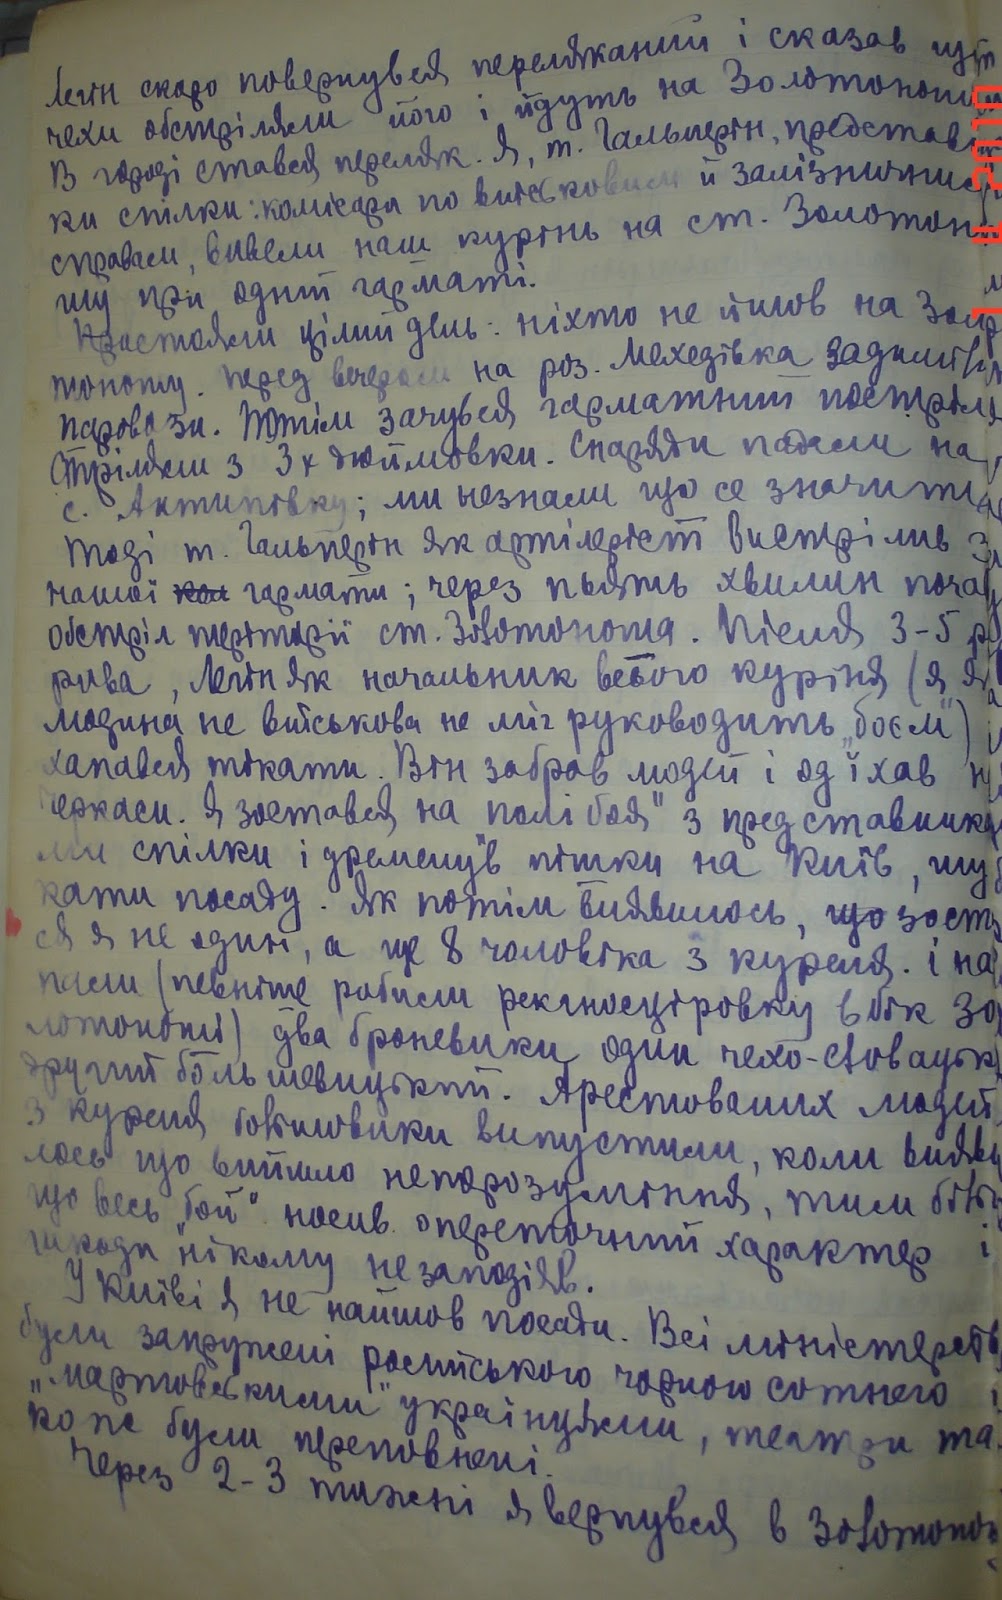 Легін скоро повернувся переляканий і сказав що
чехи обстріляли його і йдуть на Золотоношу
В городі стався переляк. Я, т. Гальперін, представн
ки спілки: комісара по військовим й залізничним
справам, вивели наш курінь на ст. Золотоно
шу при одній гарматі.
Простояли цілий день: ніхто не йшов на Золо
тоношу. Перед вечером на роз. Мехедівка задиміли
паровози. Потім зачувся гарматний постріл
Стріляли з 3х дюймовки. Снаряди падали на
с. Антипівку; ми незнали що се значить
Тоді т. Гальперін як артілеріст вистрілив з
нашої гармати; через пьять хвилин почав
обстріл теріторії ст. Золотоноша. Після 3-5 р
рива, Легін як начальник всього куріня (я як
людина не військова не міг руководить „боєм")
хапався тікати. Він забрав людей і од їхав на
Черкаси. Я зостався на полі боя" з представника
ми спілки і дременув пішки на Київ, шу
кати посаду. Як потім виявилось, що зоста
ся я не один, а ще 8 чоловіка з куреля. і на
пали (певніше робили рекгносціровку в бік Зо
лотоноші) два броневики один чехо-словацьк
другий більшевицький. Арестованих людей
з куреня большовики випустили, коли вияви
лось що вийшло непорозуміння, тим біль
що весь „бой" носив опереточний характер і
шкоди нікому незаподіяв.
У Київі я не найшов посади. Всі міністерств
були запружені російського чорною сотнею і
„мартовськими" українцями, театри та
ко ж були переповнені.
Через 2-3 тижні я вернувся в Золотоно